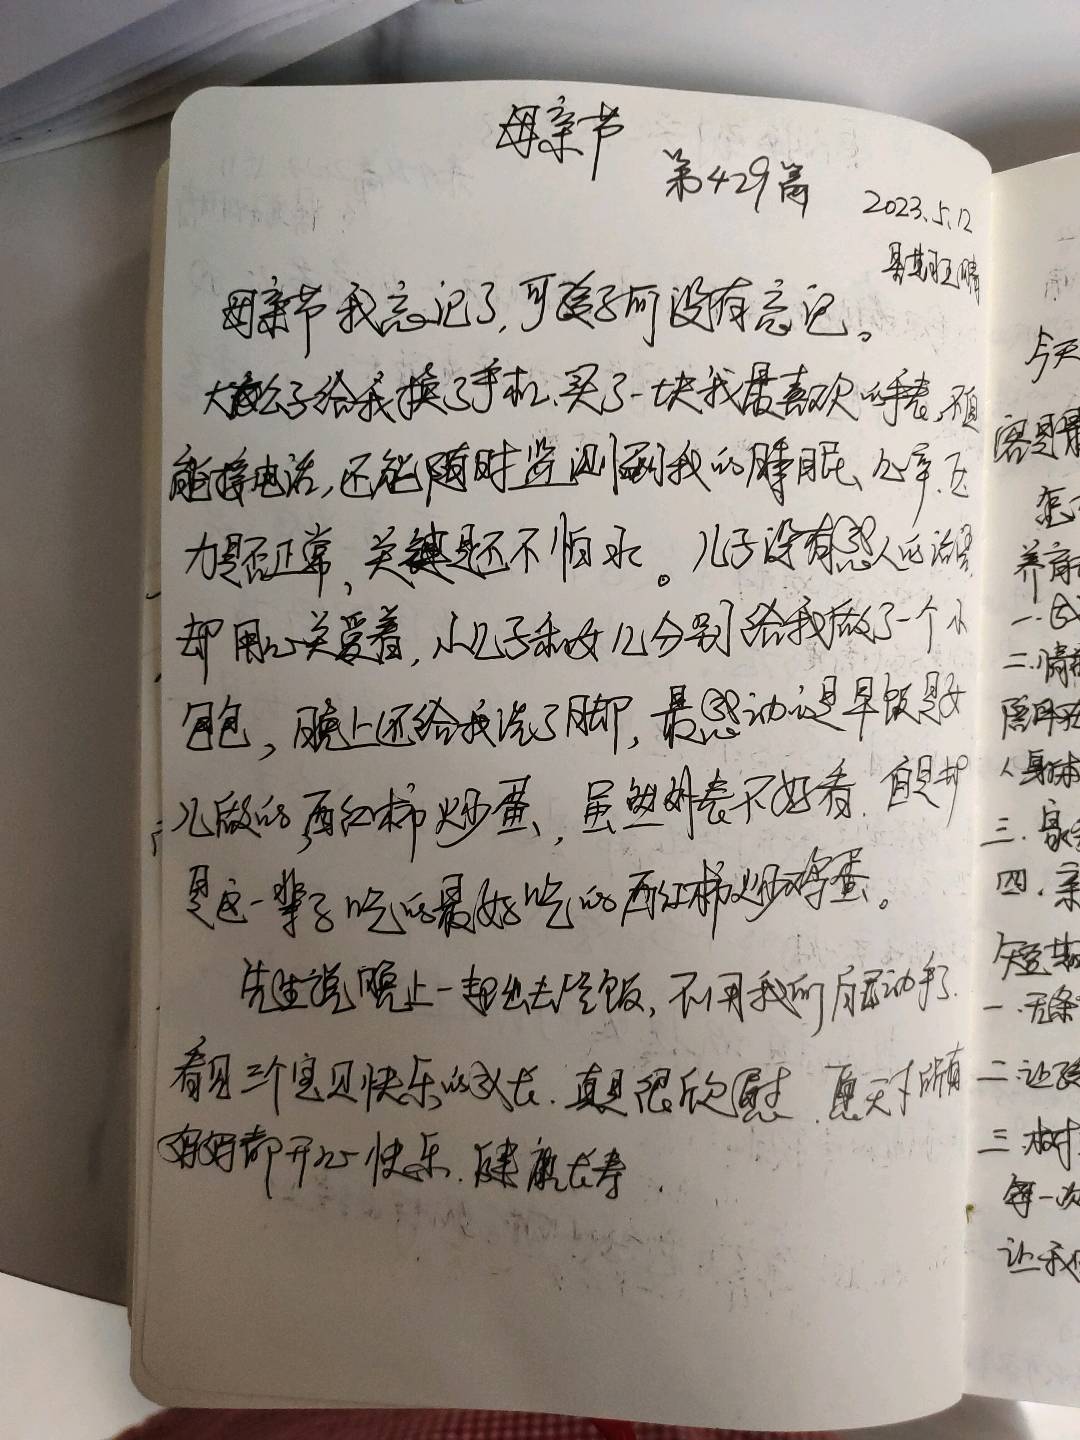 母亲节
第429篇
2023.5.12
星期五 晴
母亲节我忘记了，可孩子们没有忘记。
大公子给我换了手机、买了一块我最喜欢的手表，不但
能接电话，还能随时监测到我的睡眠、心率、压
力是否正常，关键是还不怕水。儿子没有感人的话语
却用心关爱着，小儿子和女儿分别给我做了一个小
包包，晚上还给我洗了脚，最感动的是早饭是女
儿做的，西红柿炒蛋、，虽然外表不好看，但是却
是这一辈子吃的最好吃的西红柿炒鸡蛋。
先生说晚上一起出去吃饭，不用我们自己动手了.
看见三个宝贝快乐的成长.真是很欣慰. 愿天下所有
妈妈都开心快乐.健康长寿.
今天
怎
养育
一.
二.情
三.
四.亲
一.无条
二.让孩
三.
每一次
让我